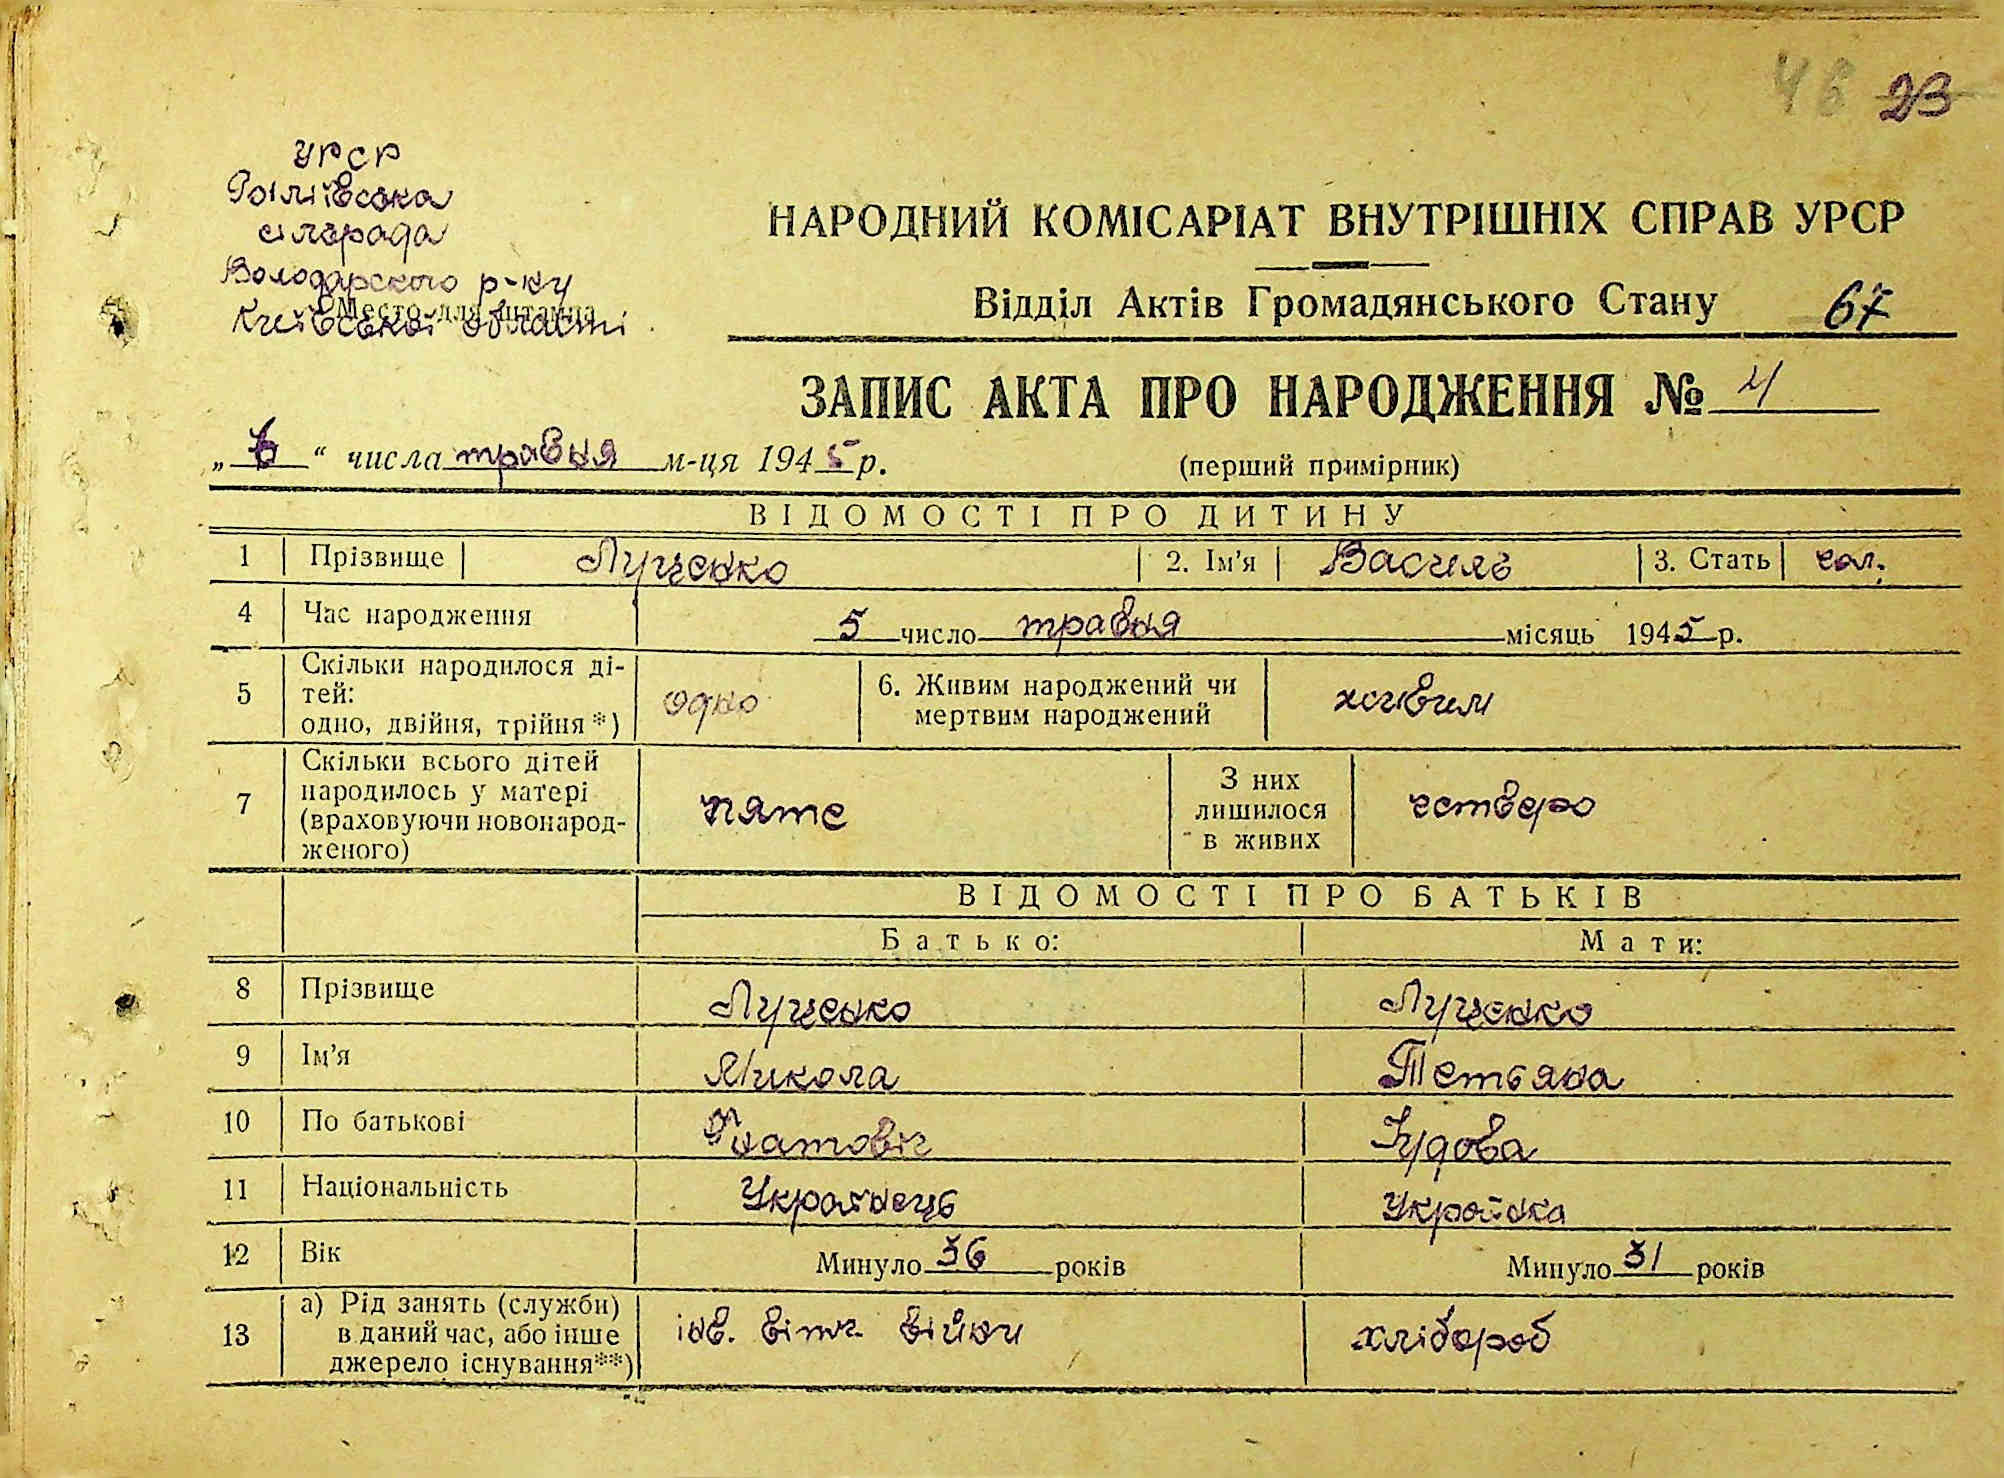 46 23
УРСР
сільрада
Володарського р-ку
Место для штампа
Київської області
НАРОДНИЙ КОМІСАРІАТ ВНУТРІШНІХ СПРАВ УРСР
Відділ Актів Громадянського Стану 67
ЗАПИС АКТА ПРО НАРОДЖЕННЯ № 4
„ 6 “ числа травня м-ця 1945 р. (перший примірник)
ВІДОМОСТІ ПРО ДИТИНУ
1 Прізвище Луценко 2. Ім'я Василь 3. Стать чол.
4 Час народження 5 число травня місяць 1945 р.
5 Скільки народилося ді-
тей:
одно, двійня, трійня *) одно 6. Живим народжений чи
мертвим народжений живим
7 Скільки всього дітей
народилось у матері
(враховуючи новонарод-
женого) пяте З них
лишилося
в живих четверо
ВІДОМОСТІ ПРО БАТЬКІВ
Батько: Мати:
8 Прізвище Луценко Луценко
9 Ім'я Микола Тетьяна
10 По батькові Гнатовіч Юдова
11 Національність Українець Українка
12 Вік Минуло 36 років Минуло 31 років
13 а) Рід занять (служби)
в даний час, або інше
джерело існування**) інв. вітч. війни хлібороб